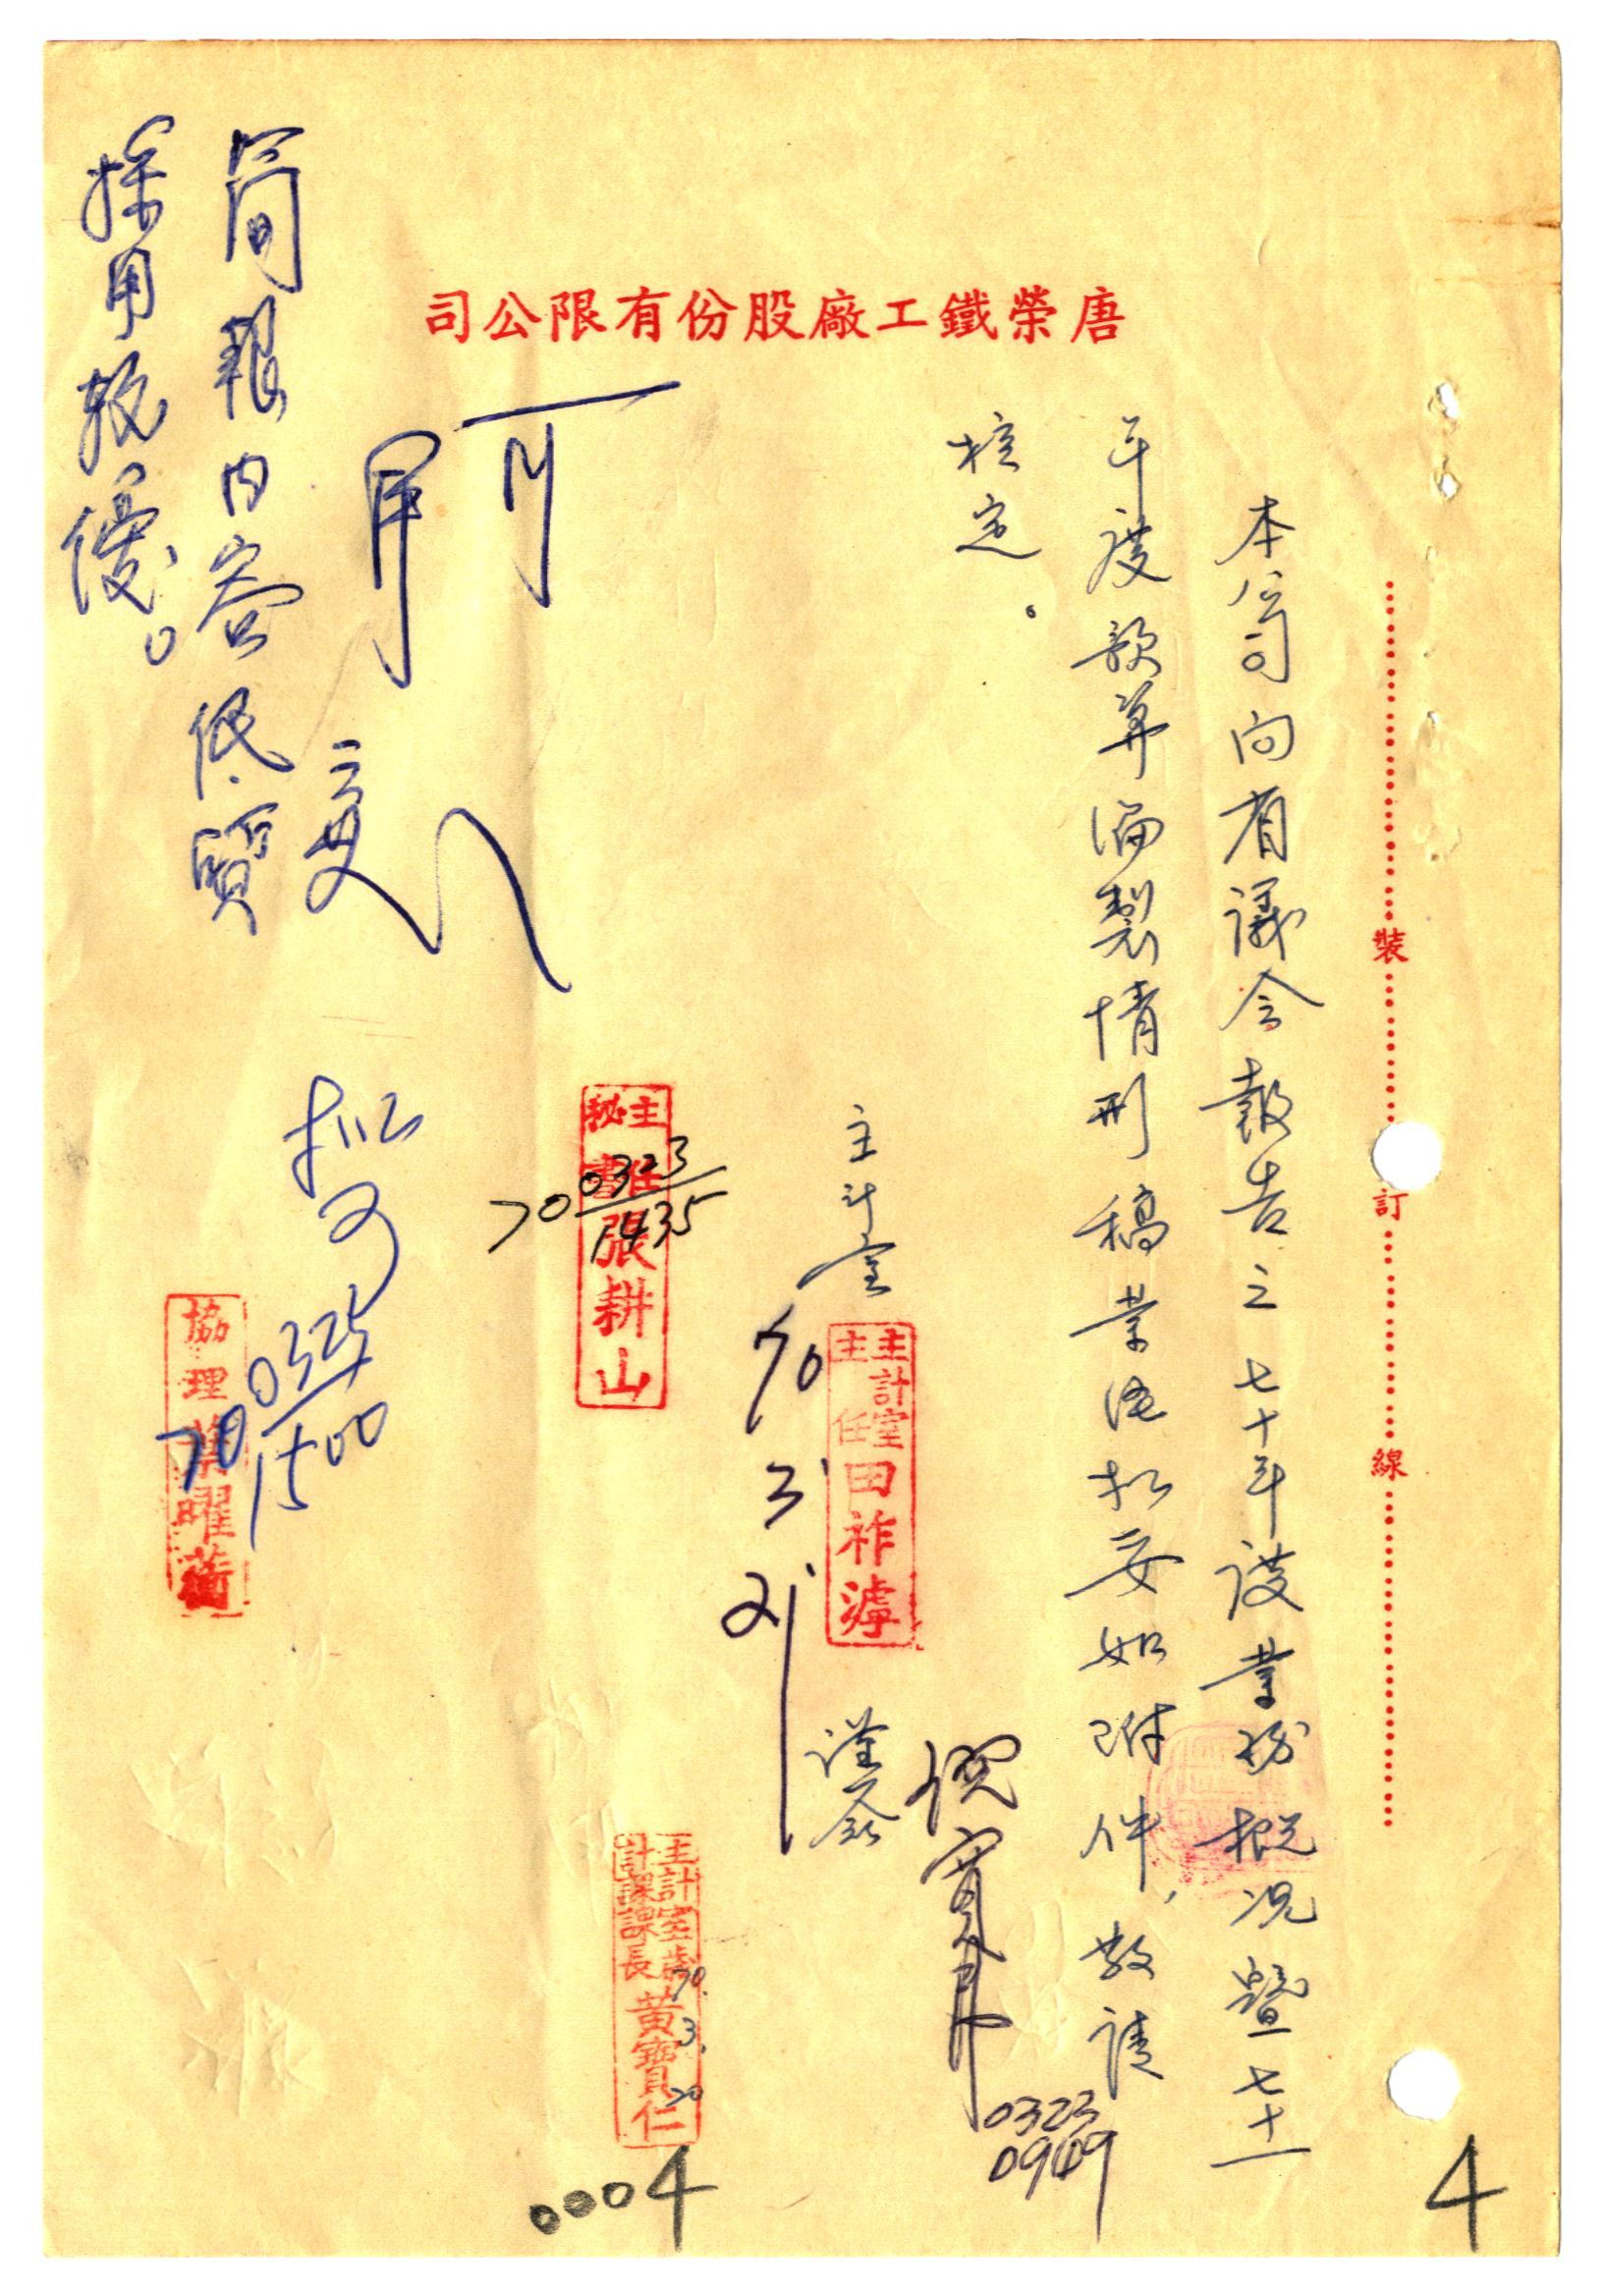 唐榮鐵工廠股份有限公司
裝
訂
線
本公司向省議會報告之七十年度業務概況暨七十一
年度預算編製情形稿業經擬妥如附件,敬請
核定。
主計室
主計室主任田祚
謹簽
70 3 21
0323
0949
主計室歲計課課長黃寶仁
70. 3. 20
主任秘書張耕山
70 0323
1435
擬可
協理
曜
70 0325
1500
可
簡報內容依
採用較優。
0004
4